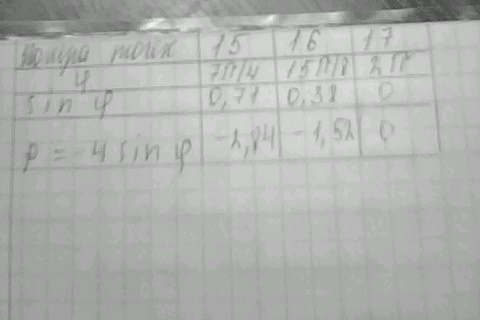 Номера точек 15 16 17
φ 7π/4 15π/8 2π
sin φ 0,71 0,38 0
ρ = -4 sin φ -2,84 -1,52 0